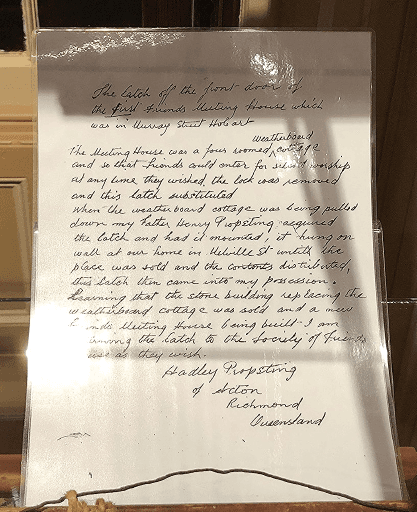 The latch off the front door of
the First Friends Meeting House which
was in Murray Street Hobart
weatherboard
The Meeting House was a four roomed cottage
and so that Friends could enter for silent worship
at any time they wished, the lock was removed
and this latch substituted
When the weatherboard cottage was being pulled
down my Father Henry Propsting acquired
the latch and had it mounted, it hung on
wall at our home in Melville St until the
place was sold and the contents distributed,
this latch then came into my possession.
Learning that the stone building replacing the
weatherboard cottage was sold and a new
Meeting House being built I am
the latch to the Society of Friends
as they wish.
Hadley Propsting
of Acton
Richmond
Queensland